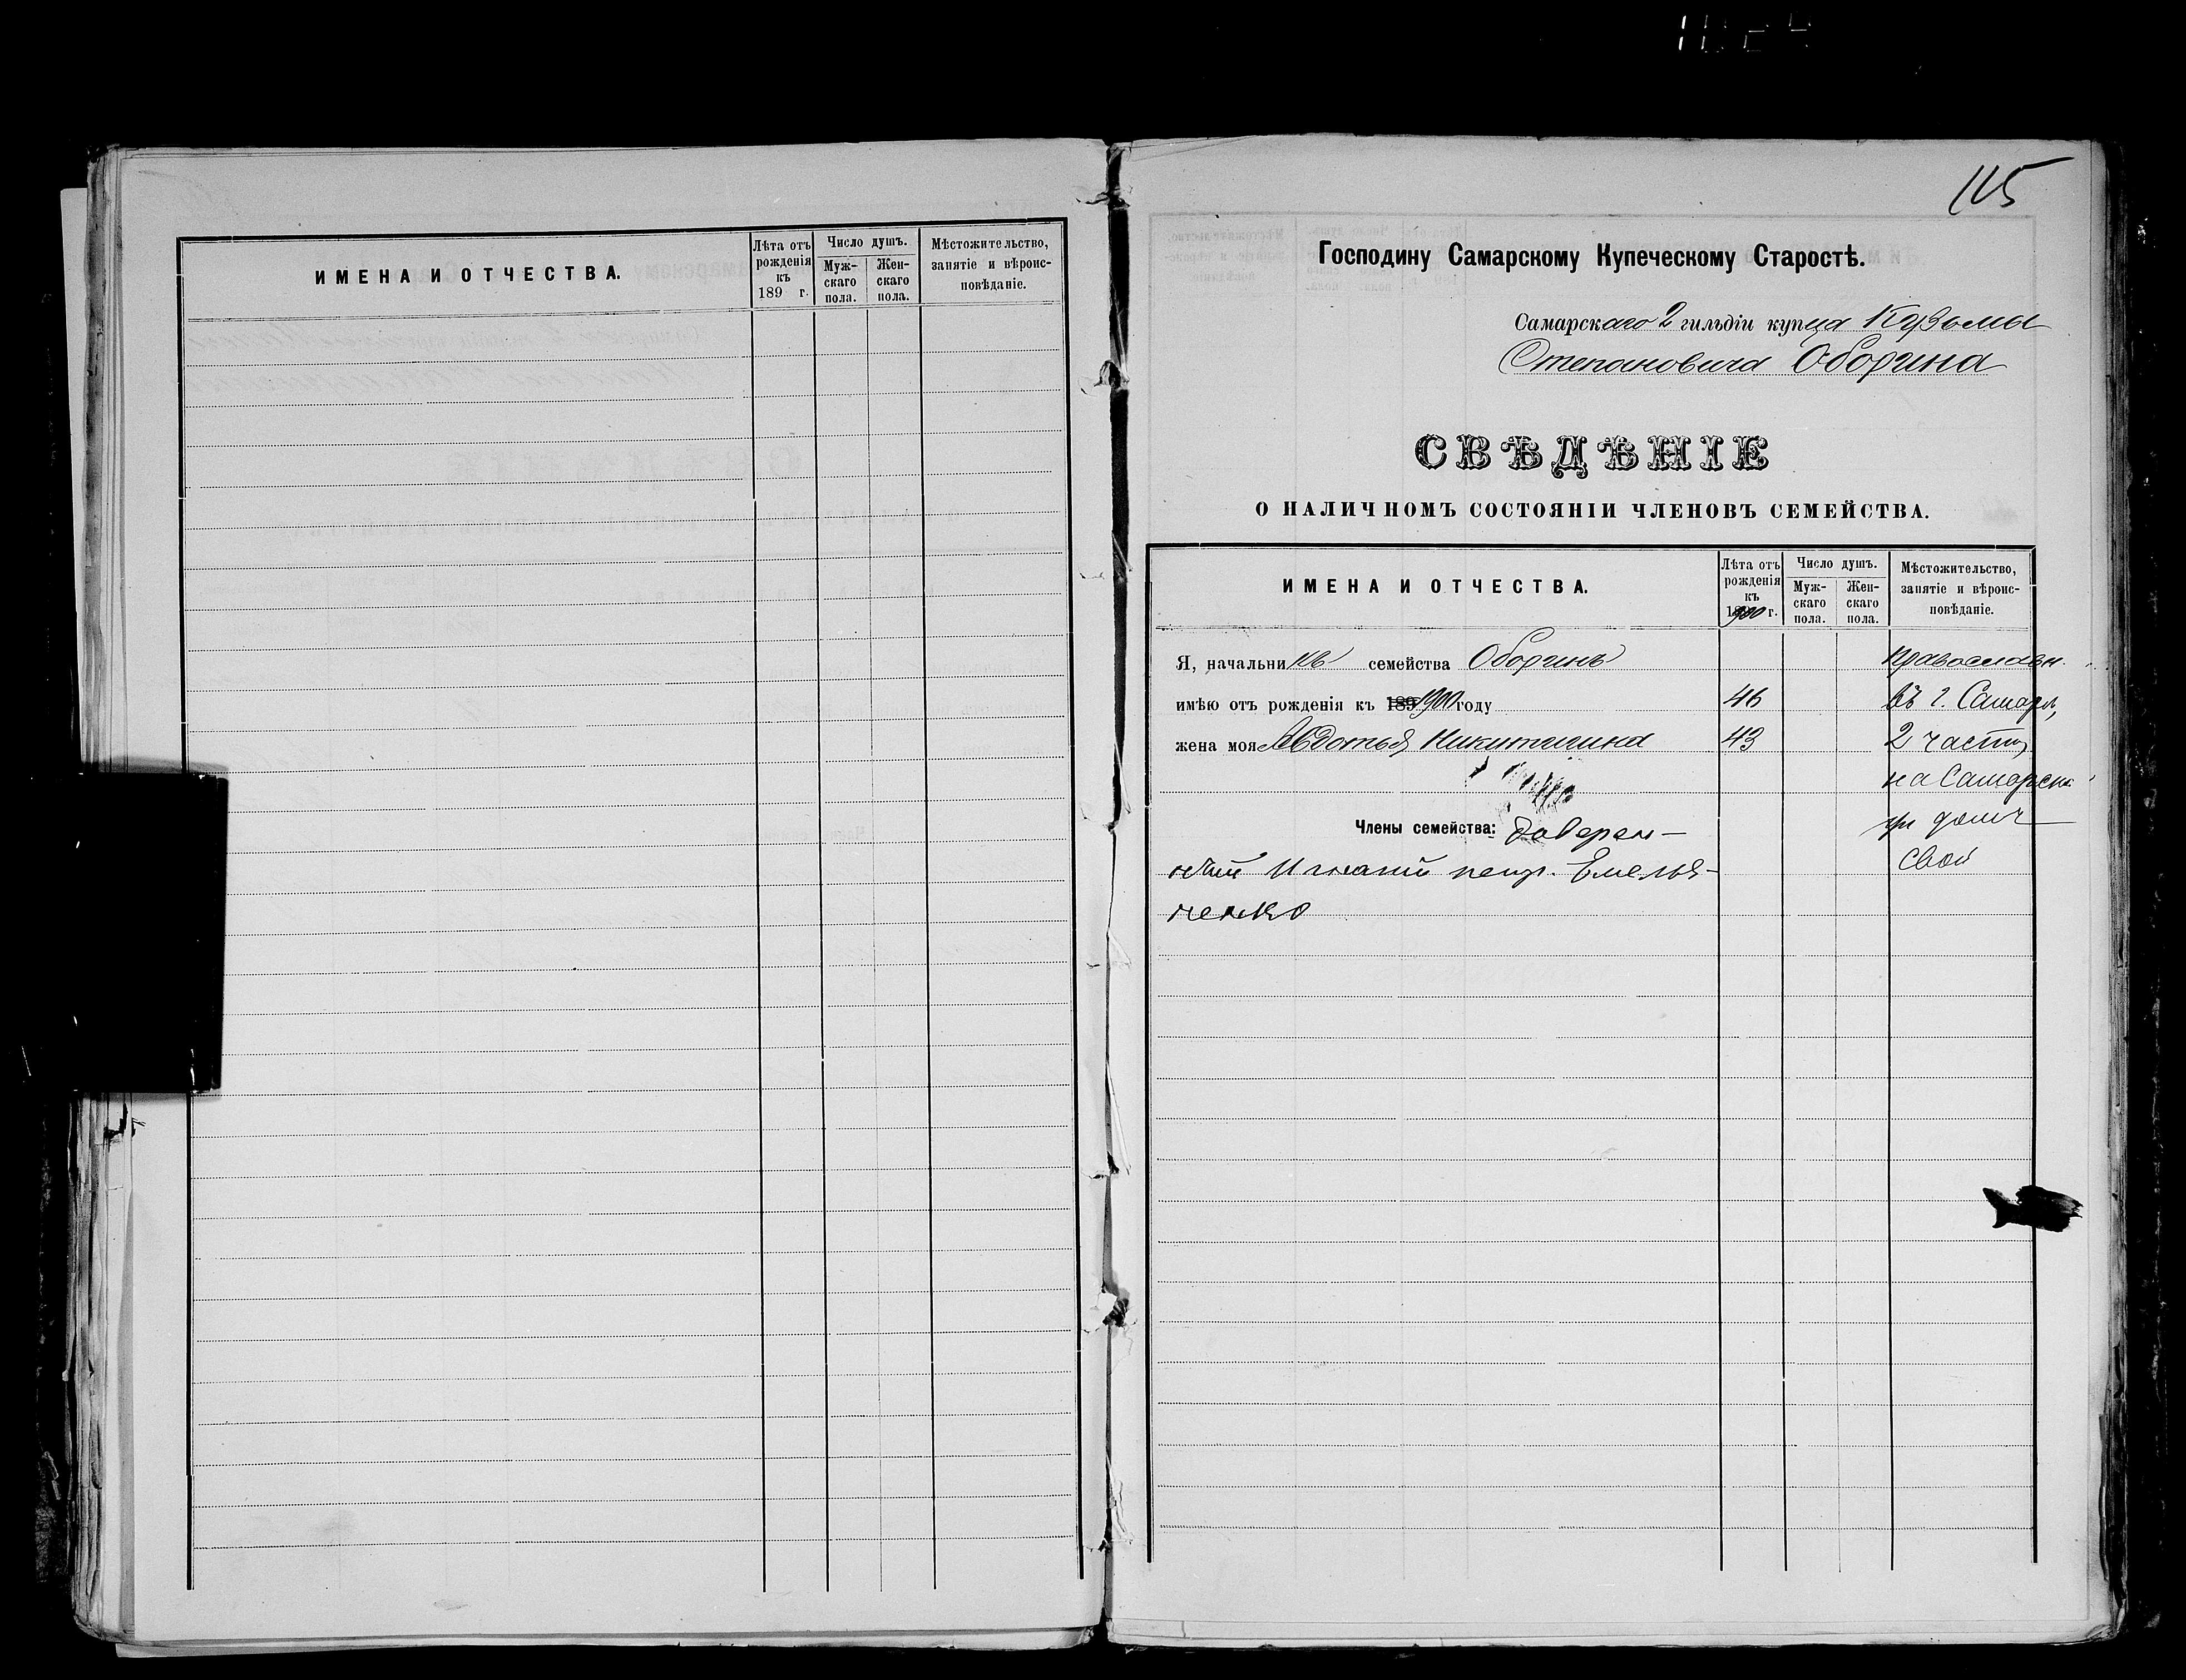 ИМЕНА И ОТЧЕСТВА.
Лѣта отъ рожденія къ 189 г.
Число душъ.
Мужскаго пола.
Женскаго пола.
Мѣстожительство, занятіе и вѣроисповѣданіе.
115
Господину Самарскому Купеческому Старостѣ.
Самарскаго 2 гильдіи купца Кузьмы
Степановича Оборина
СВѢДѢНІЕ
О НАЛИЧНОМЪ СОСТОЯНІИ ЧЛЕНОВЪ СЕМЕЙСТВА.
ИМЕНА И ОТЧЕСТВА.
Лѣта отъ рожденія къ 1900 г.
Число душъ.
Мужскаго пола.
Женскаго пола.
Мѣстожительство, занятіе и вѣроисповѣданіе.
Я, начальникъ семейства Оборинъ православн.
имѣю отъ рожденія къ 189 1900 году 46 въ г. Самарѣ,
жена моя Авдотья Никитична 43 2 части,
на Самарской
Члены семейства: доверен- домъ
ный Игнатий петр. Емелья- свой
ненко